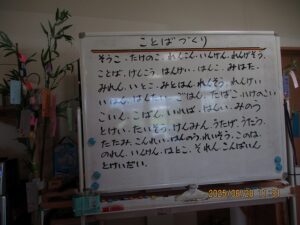 ことばづくり
そうこ、たけのこ、れんこん、いんけん、れんげそう、
ことば、けんこう、はんけい、はんこ、みはた、
みれん、いとこ、みとはん、れんそう、れんけい
いはん、はんたい、ごはん、たばこ、
こいん、こばん、いれば、はんい、みのう
とけい、たいそう、けんみん、うたげ、うたう、
たたみ、こんれい、はんのう、れいそう、このは、
のれん、いんけん、はとこ、それん、こんばんは
とけいだい、